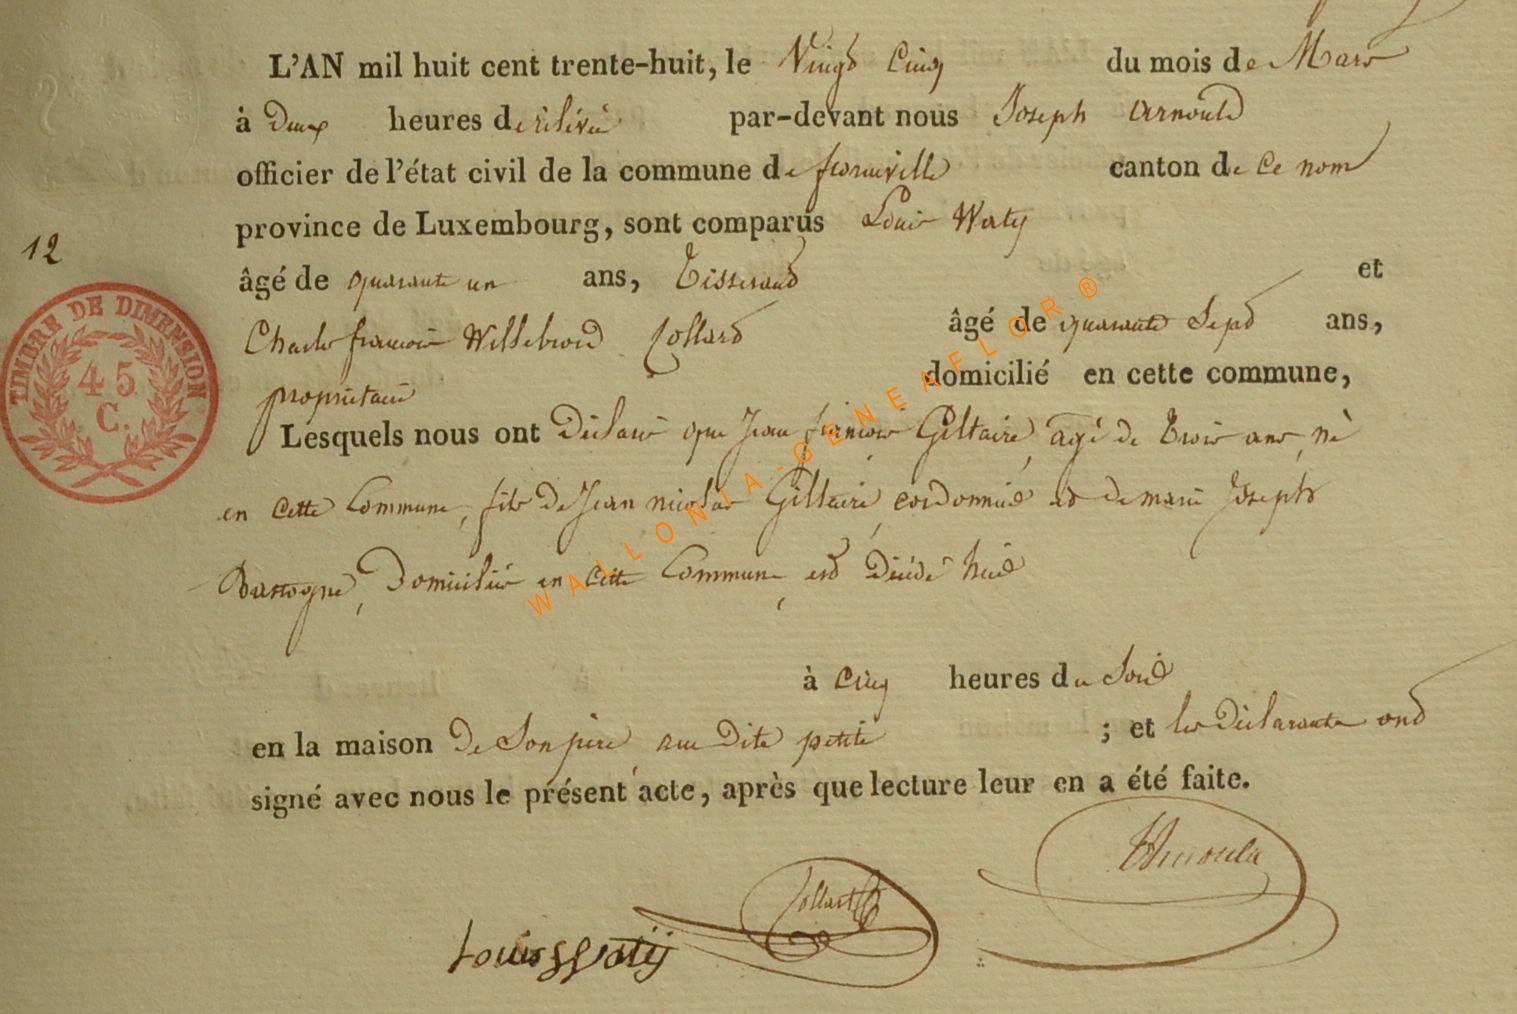 L'AN mil huit cent trente-huit, le Vingt Cinq du mois de Mars
à Deux heures de relevée par-devant nous Joseph Arnould
officier de l'état civil de la commune de florenville canton de Ce nom
province de Luxembourg, sont comparus Louis Waty
12
âgé de quarante un ans, Tisserand et
Charles françois Willebrord Collard âgé de quarante Sept ans,
propriétaire domicilié en cette commune,
TIMBRE DE DIMENSION
45
C.
Lesquels nous ont Déclaré que Jean françois Giltaire, agé de Trois ans, né
en Cette Commune, fils de Jean nicolas Giltaire, cordonnier et de marie Joseph
Bastogne, Domiciliés en Cette Commune, est Décédé hier
à Cinq heures du Soir
en la maison de Son père, rue Dite petite ; et les Déclarants ont
signé avec nous le présent acte, après que lecture leur en a été faite.
WALLONIA-GENEAFLOR®
Arnould
Collard
Louis Watij